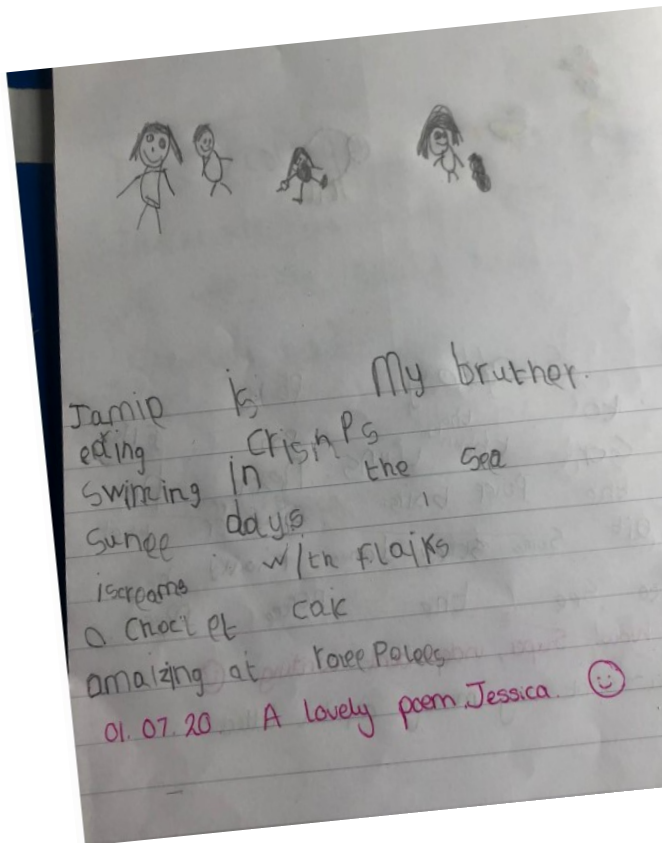 Jamie is My bruther.
eting crishps
swiming in the sea
sunee days
iscreams with flaiks
a choclet caic
amaizing at rolee polees
01.07.20 A lovely poem Jessica.